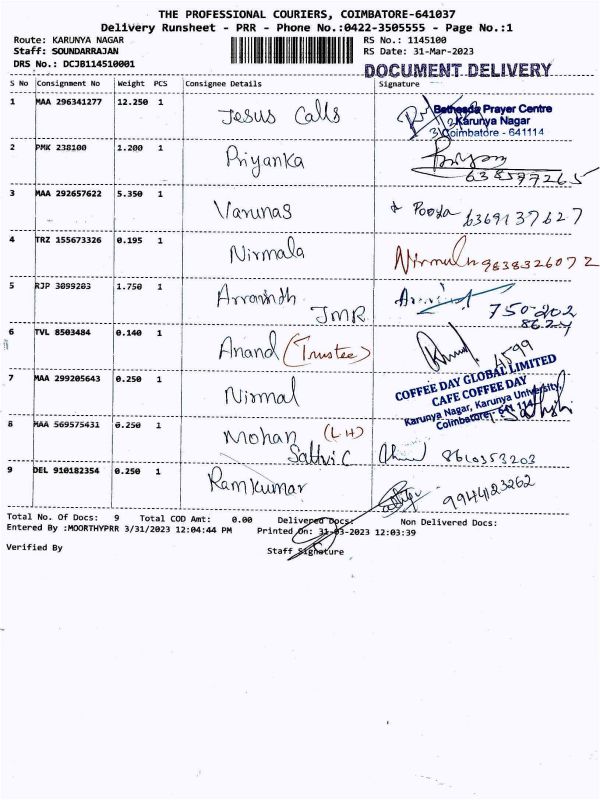 THE PROFESSIONAL COURIERS, COIMBATORE-641037
Delivery Runsheet - PRR - Phone No.:0422-3505555 - Page No.:1
Route: KARUNYA NAGAR RS No.: 1145100
Staff: SOUNDARRAJAN RS Date: 31-Mar-2023
DRS No.: DCJB114510001
DOCUMENT DELIVERY
S No Consignment No Weight PCS Consignee Details Signature
1 MAA 296341277 12.250 1 Jesus Calls
Bethesda Prayer Centre
Karunya Nagar
Coimbatore - 641114
2 PMK 238100 1.200 1 Priyanka
6385977265
3 MAA 292657622 5.350 1 Varunas Pooja 6369137627
4 TRZ 155673326 0.195 1 Nirmala Nirmala 9838326072
5 RJP 3099203 1.750 1 Arravindh
JMR 750-202
6 TVL 8503484 0.140 1 Anand (Trustee)
4599
7 MAA 299205643 0.250 1 Nirmal
COFFEE DAY GLOBAL LIMITED
CAFE COFFEE DAY
Karunya Nagar, Karunya University,
Coimbatore, 641 114
8 MAA 569575431 0.250 1 Mohan (LH)
8610353203
9 DEL 910182354 0.250 1 Ramkumar 9944123262
Total No. Of Docs: 9 Total COD Amt: 0.00 Delivered Docs: Non Delivered Docs:
Entered By :MOORTHYPRR 3/31/2023 12:04:44 PM Printed On: 31-03-2023 12:03:39
Verified By Staff Signature